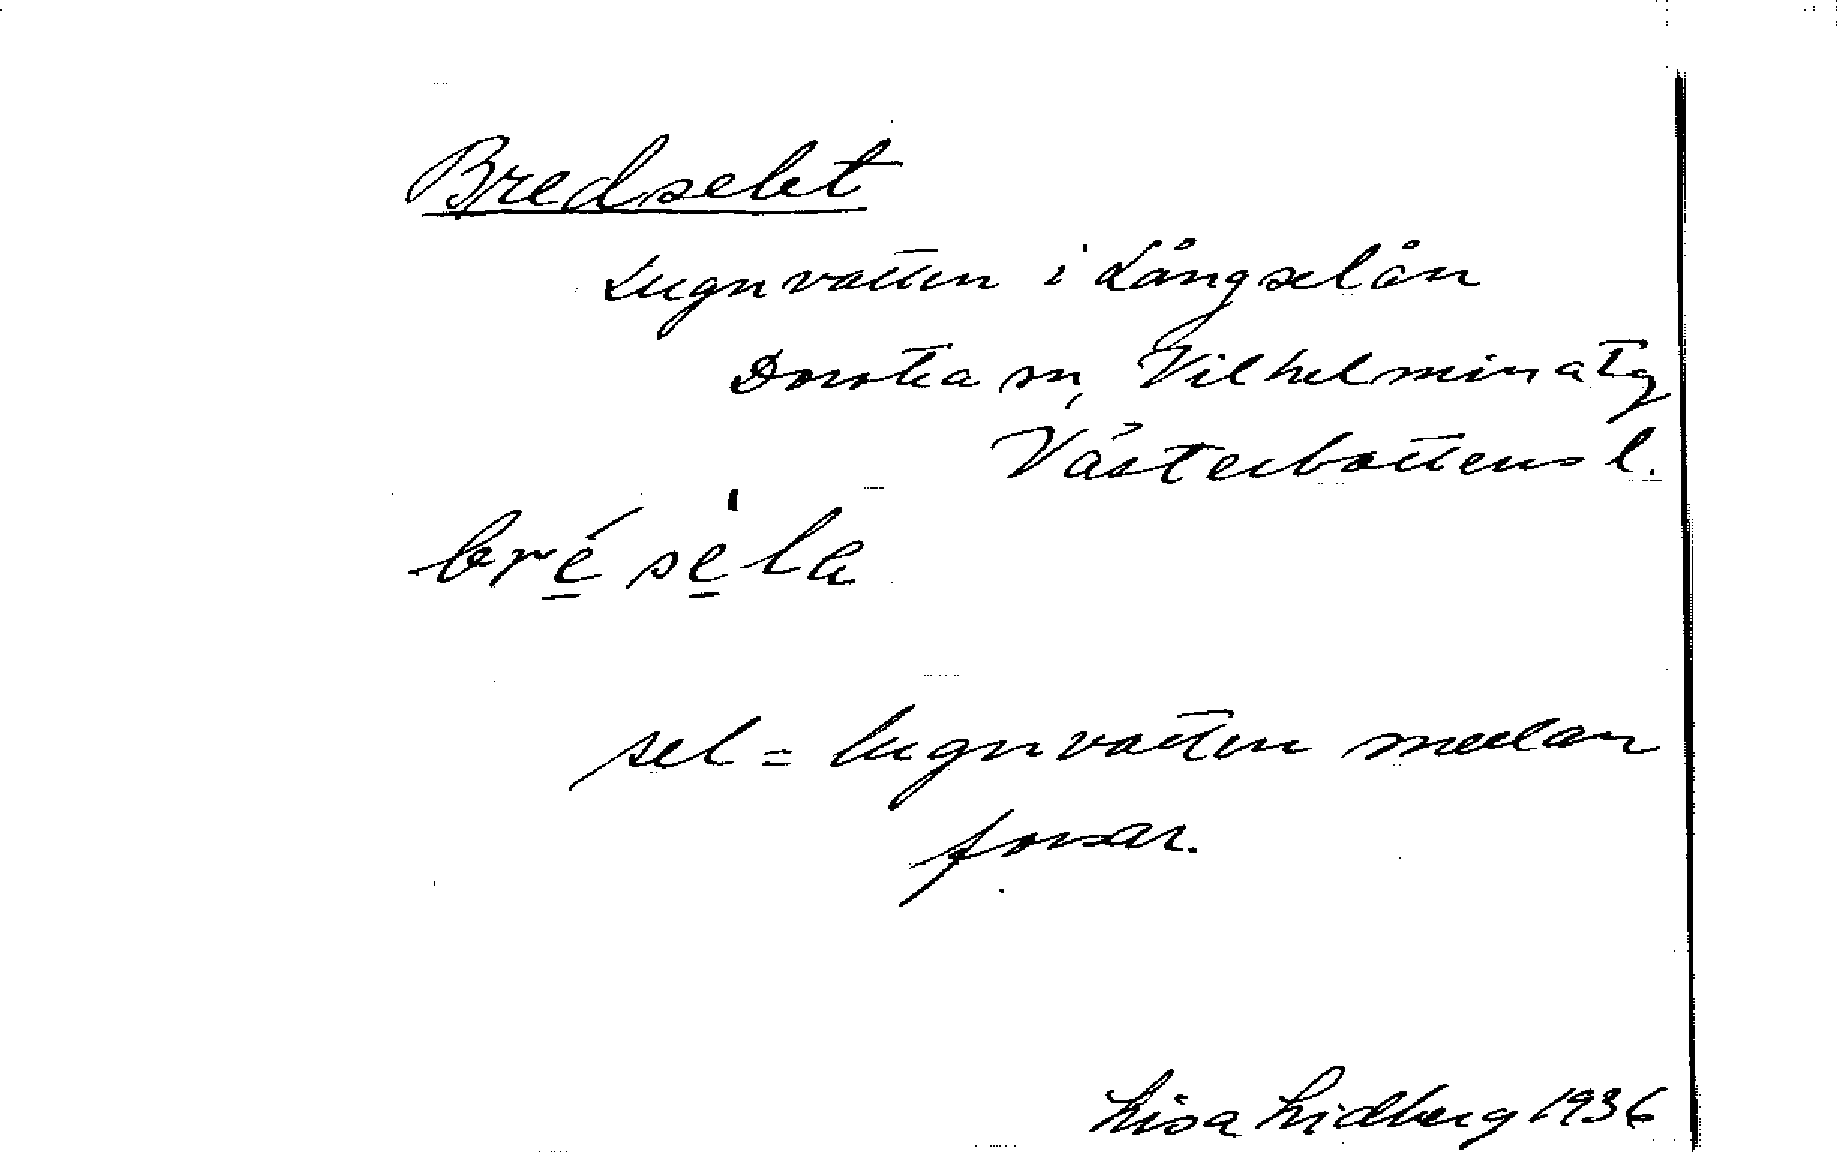 Bredselet
Lugnvatten i Långselån
Dorotea sn, Vilhelmina tg
Västerbottens l.
bré̱ sè̱la
sel = lugnvatten mellan
forsar.
Lisa Lidberg 1936